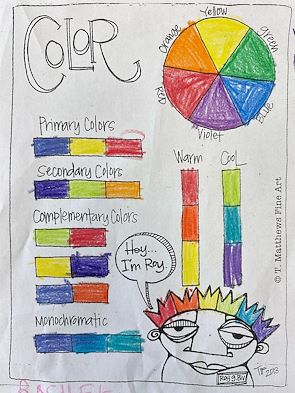 COLOR
Yellow
Orange
green
Red
Blue
Violet
Primary Colors
Secondary Colors
Warm
Cool
Complementary Colors
Hey...
I'm Roy.
Monochromatic
Roy G. Biv
2013
© T. Matthews Fine Art